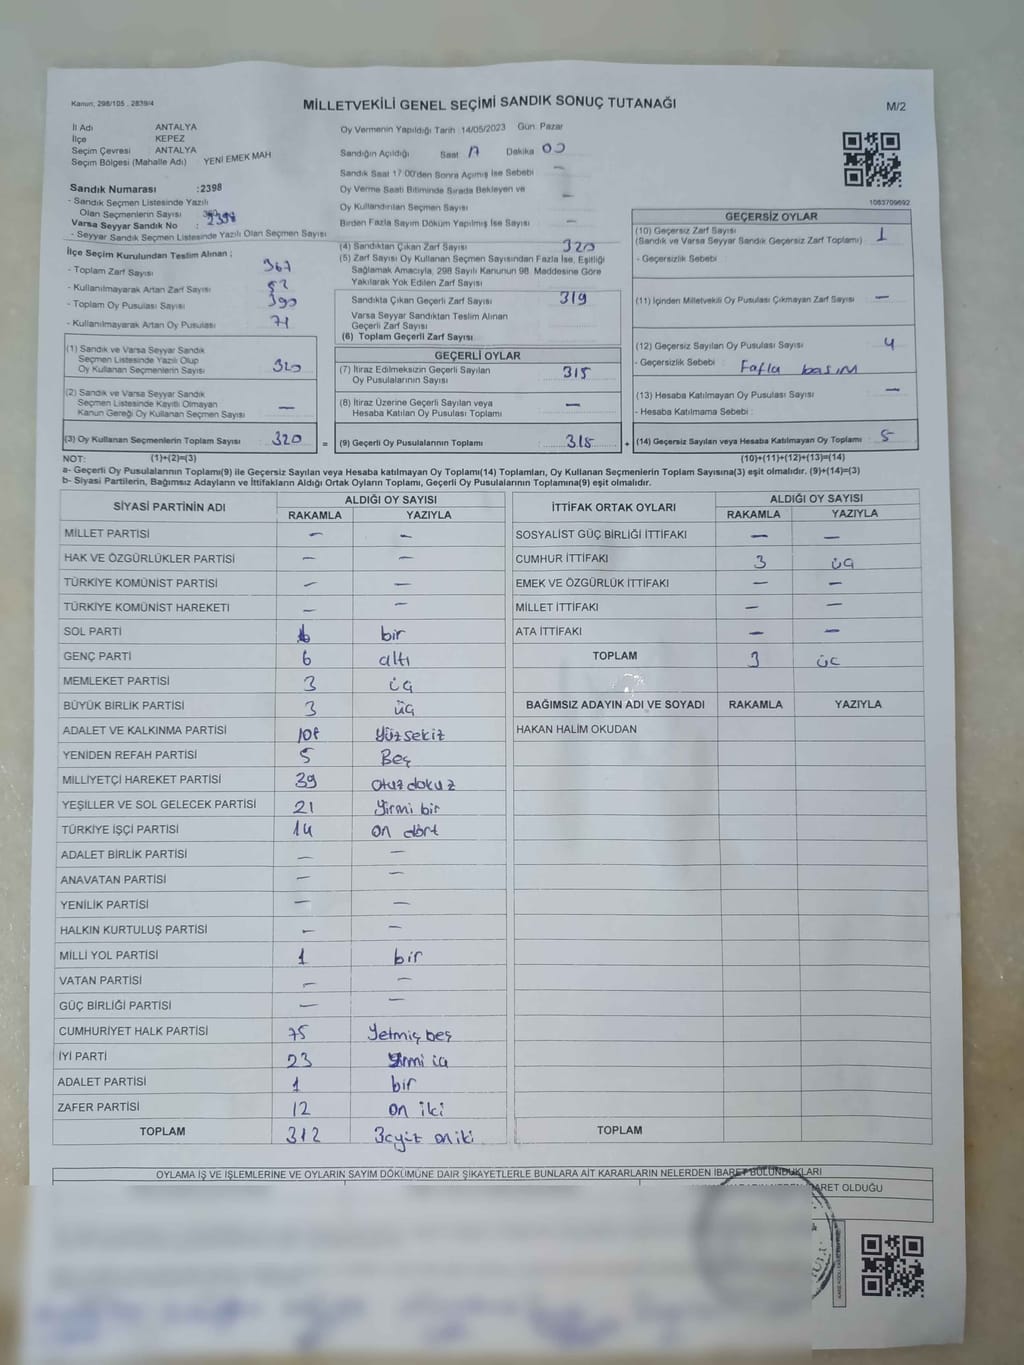 Kanun; 298/105 , 2839/4
MİLLETVEKİLİ GENEL SEÇİMİ SANDIK SONUÇ TUTANAĞI
M/2
İl Adı ANTALYA
İlçe KEPEZ
Seçim Çevresi : ANTALYA
Seçim Bölgesi (Mahalle Adı) YENİ EMEK MAH
Sandık Numarası :2398
- Sandık Seçmen Listesinde Yazılı
Olan Seçmenlerin Sayısı
Varsa Seyyar Sandık No :
- Seyyar Sandık Seçmen Listesinde Yazılı Olan Seçmen Sayısı
İlçe Seçim Kurulundan Teslim Alınan ;
- Toplam Zarf Sayısı 367
- Kullanılmayarak Artan Zarf Sayısı
- Toplam Oy Pusulası Sayısı 390
- Kullanılmayarak Artan Oy Pusulası 71
(1) Sandık ve Varsa Seyyar Sandık
Seçmen Listesinde Yazılı Olup
Oy Kullanan Seçmenlerin Sayısı 320
(2) Sandık ve Varsa Seyyar Sandık
Seçmen Listesinde Kayıtlı Olmayan
Kanun Gereği Oy Kullanan Seçmen Sayısı —
(3) Oy Kullanan Seçmenlerin Toplam Sayısı 320
Oy Vermenin Yapıldığı Tarih :14/05/2023 Gün: Pazar
Sandığın Açıldığı Saat 17 Dakika 00
Sandık Saat 17:00'den Sonra Açımış İse Sebebi —
Oy Verme Saati Bitiminde Sırada Bekleyen ve —
Oy Kullandırılan Seçmen Sayısı
Birden Fazla Sayım Döküm Yapılmış İse Sayısı —
(4) Sandıktan Çıkan Zarf Sayısı 320
(5) Zarf Sayısı Oy Kullanan Seçmen Sayısından Fazla İse, Eşitliği
Sağlamak Amacıyla, 298 Sayılı Kanunun 98. Maddesine Göre
Yakılarak Yok Edilen Zarf Sayısı
Sandıkta Çıkan Geçerli Zarf Sayısı 319
Varsa Seyyar Sandıktan Teslim Alınan
Geçerli Zarf Sayısı
(6) Toplam Geçerli Zarf Sayısı
GEÇERLİ OYLAR
(7) İtiraz Edilmeksizin Geçerli Sayılan
Oy Pusulalarının Sayısı 315
(8) İtiraz Üzerine Geçerli Sayılan veya
Hesaba Katılan Oy Pusulası Toplamı —
= (9) Geçerli Oy Pusulalarının Toplamı 315 +
1083709692
GEÇERSİZ OYLAR
(10) Geçersiz Zarf Sayısı
(Sandık ve Varsa Seyyar Sandık Geçersiz Zarf Toplamı) 1
- Geçersizlik Sebebi :
(11) İçinden Milletvekili Oy Pusulası Çıkmayan Zarf Sayısı —
(12) Geçersiz Sayılan Oy Pusulası Sayısı 4
- Geçersizlik Sebebi : Fafla basım
(13) Hesaba Katılmayan Oy Pusulası Sayısı —
- Hesaba Katılmama Sebebi :
(14) Geçersiz Sayılan veya Hesaba Katılmayan Oy Toplamı 5
NOT: (1)+(2)=(3) (10)+(11)+(12)+(13)=(14)
a- Geçerli Oy Pusulalarının Toplamı(9) ile Geçersiz Sayılan veya Hesaba katılmayan Oy Toplamı(14) Toplamları, Oy Kullanan Seçmenlerin Toplam Sayısına(3) eşit olmalıdır. (9)+(14)=(3)
b- Siyasi Partilerin, Bağımsız Adayların ve İttifakların Aldığı Ortak Oyların Toplamı, Geçerli Oy Pusulalarının Toplamına(9) eşit olmalıdır.
SİYASİ PARTİNİN ADI ALDIĞI OY SAYISI
RAKAMLA YAZIYLA
MİLLET PARTİSİ — —
HAK VE ÖZGÜRLÜKLER PARTİSİ — —
TÜRKİYE KOMÜNİST PARTİSİ — —
TÜRKİYE KOMÜNİST HAREKETİ — —
SOL PARTİ bir
GENÇ PARTİ 6 altı
MEMLEKET PARTİSİ 3 üç
BÜYÜK BİRLİK PARTİSİ 3 üç
ADALET VE KALKINMA PARTİSİ 108 Yüzsekiz
YENİDEN REFAH PARTİSİ 5 Beş
MİLLİYETÇİ HAREKET PARTİSİ 39 otuz dokuz
YEŞİLLER VE SOL GELECEK PARTİSİ 21 Yirmi bir
TÜRKİYE İŞÇİ PARTİSİ 14 on dört
ADALET BİRLİK PARTİSİ — —
ANAVATAN PARTİSİ — —
YENİLİK PARTİSİ — —
HALKIN KURTULUŞ PARTİSİ — —
MİLLİ YOL PARTİSİ 1 bir
VATAN PARTİSİ — —
GÜÇ BİRLİĞİ PARTİSİ — —
CUMHURİYET HALK PARTİSİ 75 Yetmiş beş
İYİ PARTİ 23 Yirmi üç
ADALET PARTİSİ 1 bir
ZAFER PARTİSİ 12 on iki
TOPLAM 312 3cyüz oniki
İTTİFAK ORTAK OYLARI ALDIĞI OY SAYISI
RAKAMLA YAZIYLA
SOSYALİST GÜÇ BİRLİĞİ İTTİFAKI — —
CUMHUR İTTİFAKI 3 üç
EMEK VE ÖZGÜRLÜK İTTİFAKI — —
MİLLET İTTİFAKI — —
ATA İTTİFAKI — —
TOPLAM 3 üc
BAĞIMSIZ ADAYIN ADI VE SOYADI RAKAMLA YAZIYLA
HAKAN HALİM OKUDAN
TOPLAM
OYLAMA İŞ VE İŞLEMLERİNE VE OYLARIN SAYIM DÖKÜMÜNE DAİR ŞİKAYETLERLE BUNLARA AİT KARARLARIN NELERDEN İBARET BULUNDUKLARI
İBARET OLDUĞU